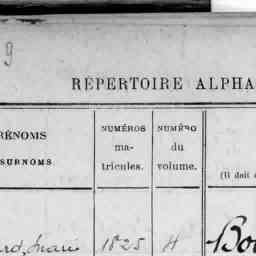 9
RÉPERTOIRE ALPHA
RÉNOMS
SURNOMS.
NUMÉROS
ma-
tricules.
NUMÉRO
du
volume.
(Il doit
1825 H Bo